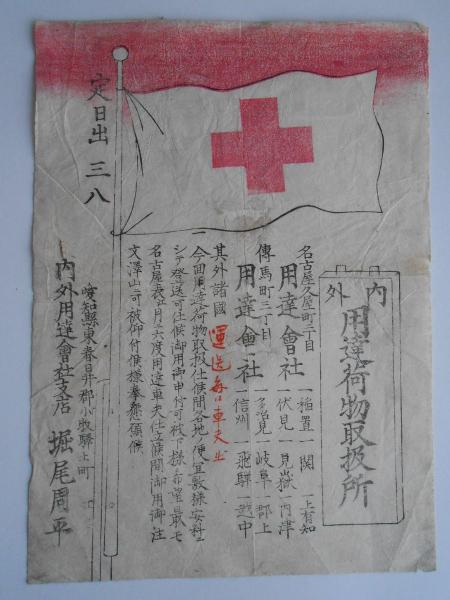 内外
用達荷物取扱所
名古屋久屋町二丁目
用達會社
傳馬町三丁目
用達會社
一稲置 一関 一上有知
一伏見 一見嶽 一内津
一多治見 一岐阜 一郡上
一信州 一飛騨 一越中
其外諸國
運送毎日車夫出
一今回用達荷物取扱仕候間各地ノ便宜敷様安料ニ
シテ登送可仕候御用御申付可被下様希望最モ
名古屋表正月六度用達車夫仕立候間御用御注
文澤山ニ可被仰付候様奉懇願候
愛知縣東春日井郡小牧驛上町
内外用達會社支店 堀尾周平
定日出 三八